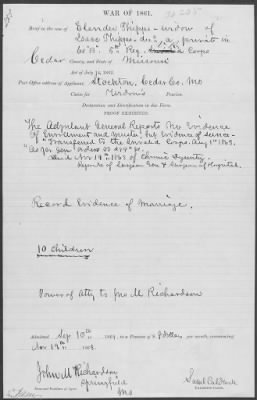 WAR OF 1861.
Brief in the case of Elender Phipps - widow of
Isaac Phipps - dec'd, a private in
Co "B" 5th Reg. Corps
Cedar County, and State of Missouri
Act of July 14, 1862.
Post Office address of Applicant Stockton, Cedar Co. Mo
Claim for Widow's Pension.
Declaration and Identification in due Form.
PROOF EXHIBITED.
The Adjutant General Reports No Evidence
of Enrolment and muster, but evidence of service -
"Transferred to the Invalid Corps. Aug 1st 1863.
Died Nov 19th 1863 of Chronic Dysentery.
Reports of Surgeon Gen & Surgeon of Hospital.
Record Evidence of Marriage.
10 Children
Power of Atty to Jno M Richardson
Admitted Sep 10th 1869, to a Pension of 8 dollars per month, commencing
Nov 19th 1863.
John M Richardson
Springfield
Mo